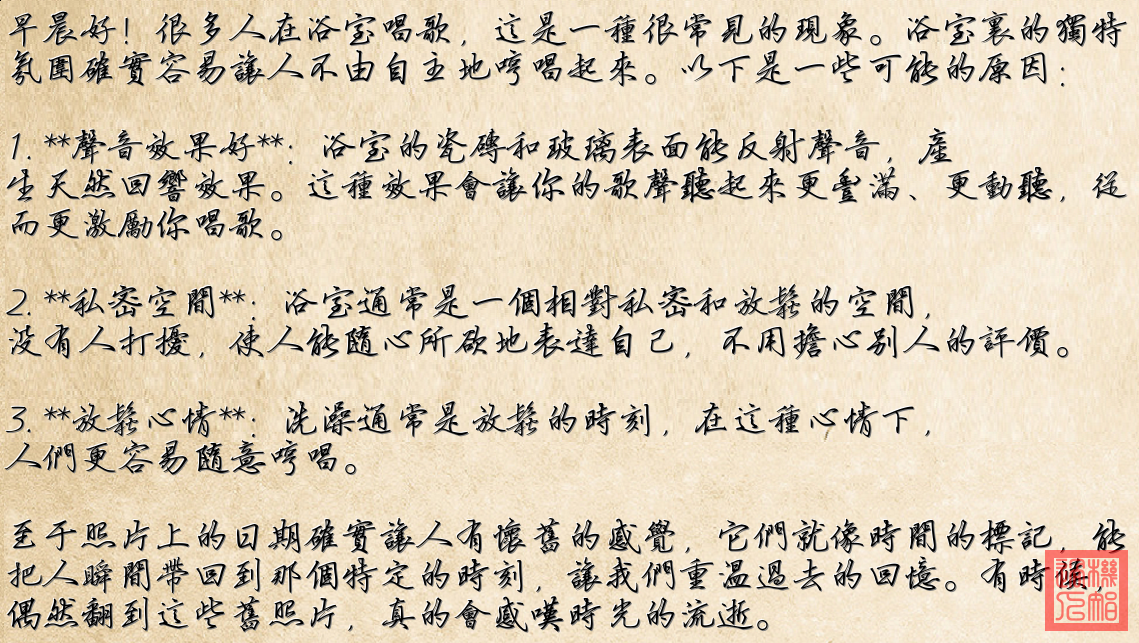 早晨好！很多人在浴室唱歌，這是一種很常見的現象。浴室裏的獨特
氛圍確實容易讓人不由自主地哼唱起來。以下是一些可能的原因：
1. **聲音效果好**：浴室的瓷磚和玻璃表面能反射聲音，產
生天然回響效果。這種效果會讓你的歌聲聽起來更豐滿、更動聽，從
而更激勵你唱歌。
2. **私密空間**：浴室通常是一個相對私密和放鬆的空間，
沒有人打擾，使人能隨心所欲地表達自己，不用擔心別人的評價。
3. **放鬆心情**：洗澡通常是放鬆的時刻，在這種心情下，
人們更容易隨意哼唱。
至于照片上的日期確實讓人有懷舊的感覺，它們就像時間的標記，能
把人瞬間帶回到那個特定的時刻，讓我們重溫過去的回憶。有時候，
偶然翻到這些舊照片，真的會感嘆時光的流逝。